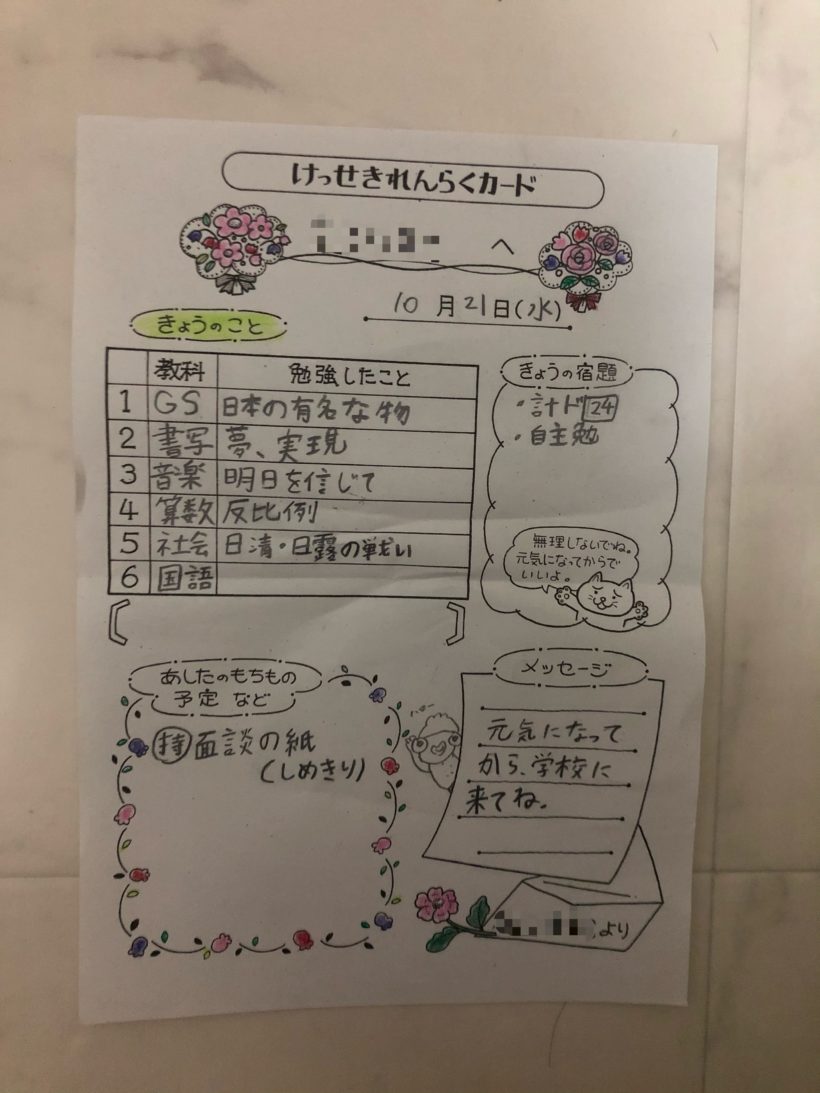 けっせきれんらくカード
へ
10月21日(水)
きょうのこと
教科 勉強したこと
1 GS 日本の有名な物
2 書写 夢、実現
3 音楽 明日を信じて
4 算数 反比例
5 社会 日清・日露の戦い
6 国語
きょうの宿題
・計ド24
・自主勉
無理しないでね。
元気になってからで
いいよ。
あしたのもちもの
予定 など
持 面談の紙
(しめきり)
メッセージ
元気になって
から、学校に
来てね。
より